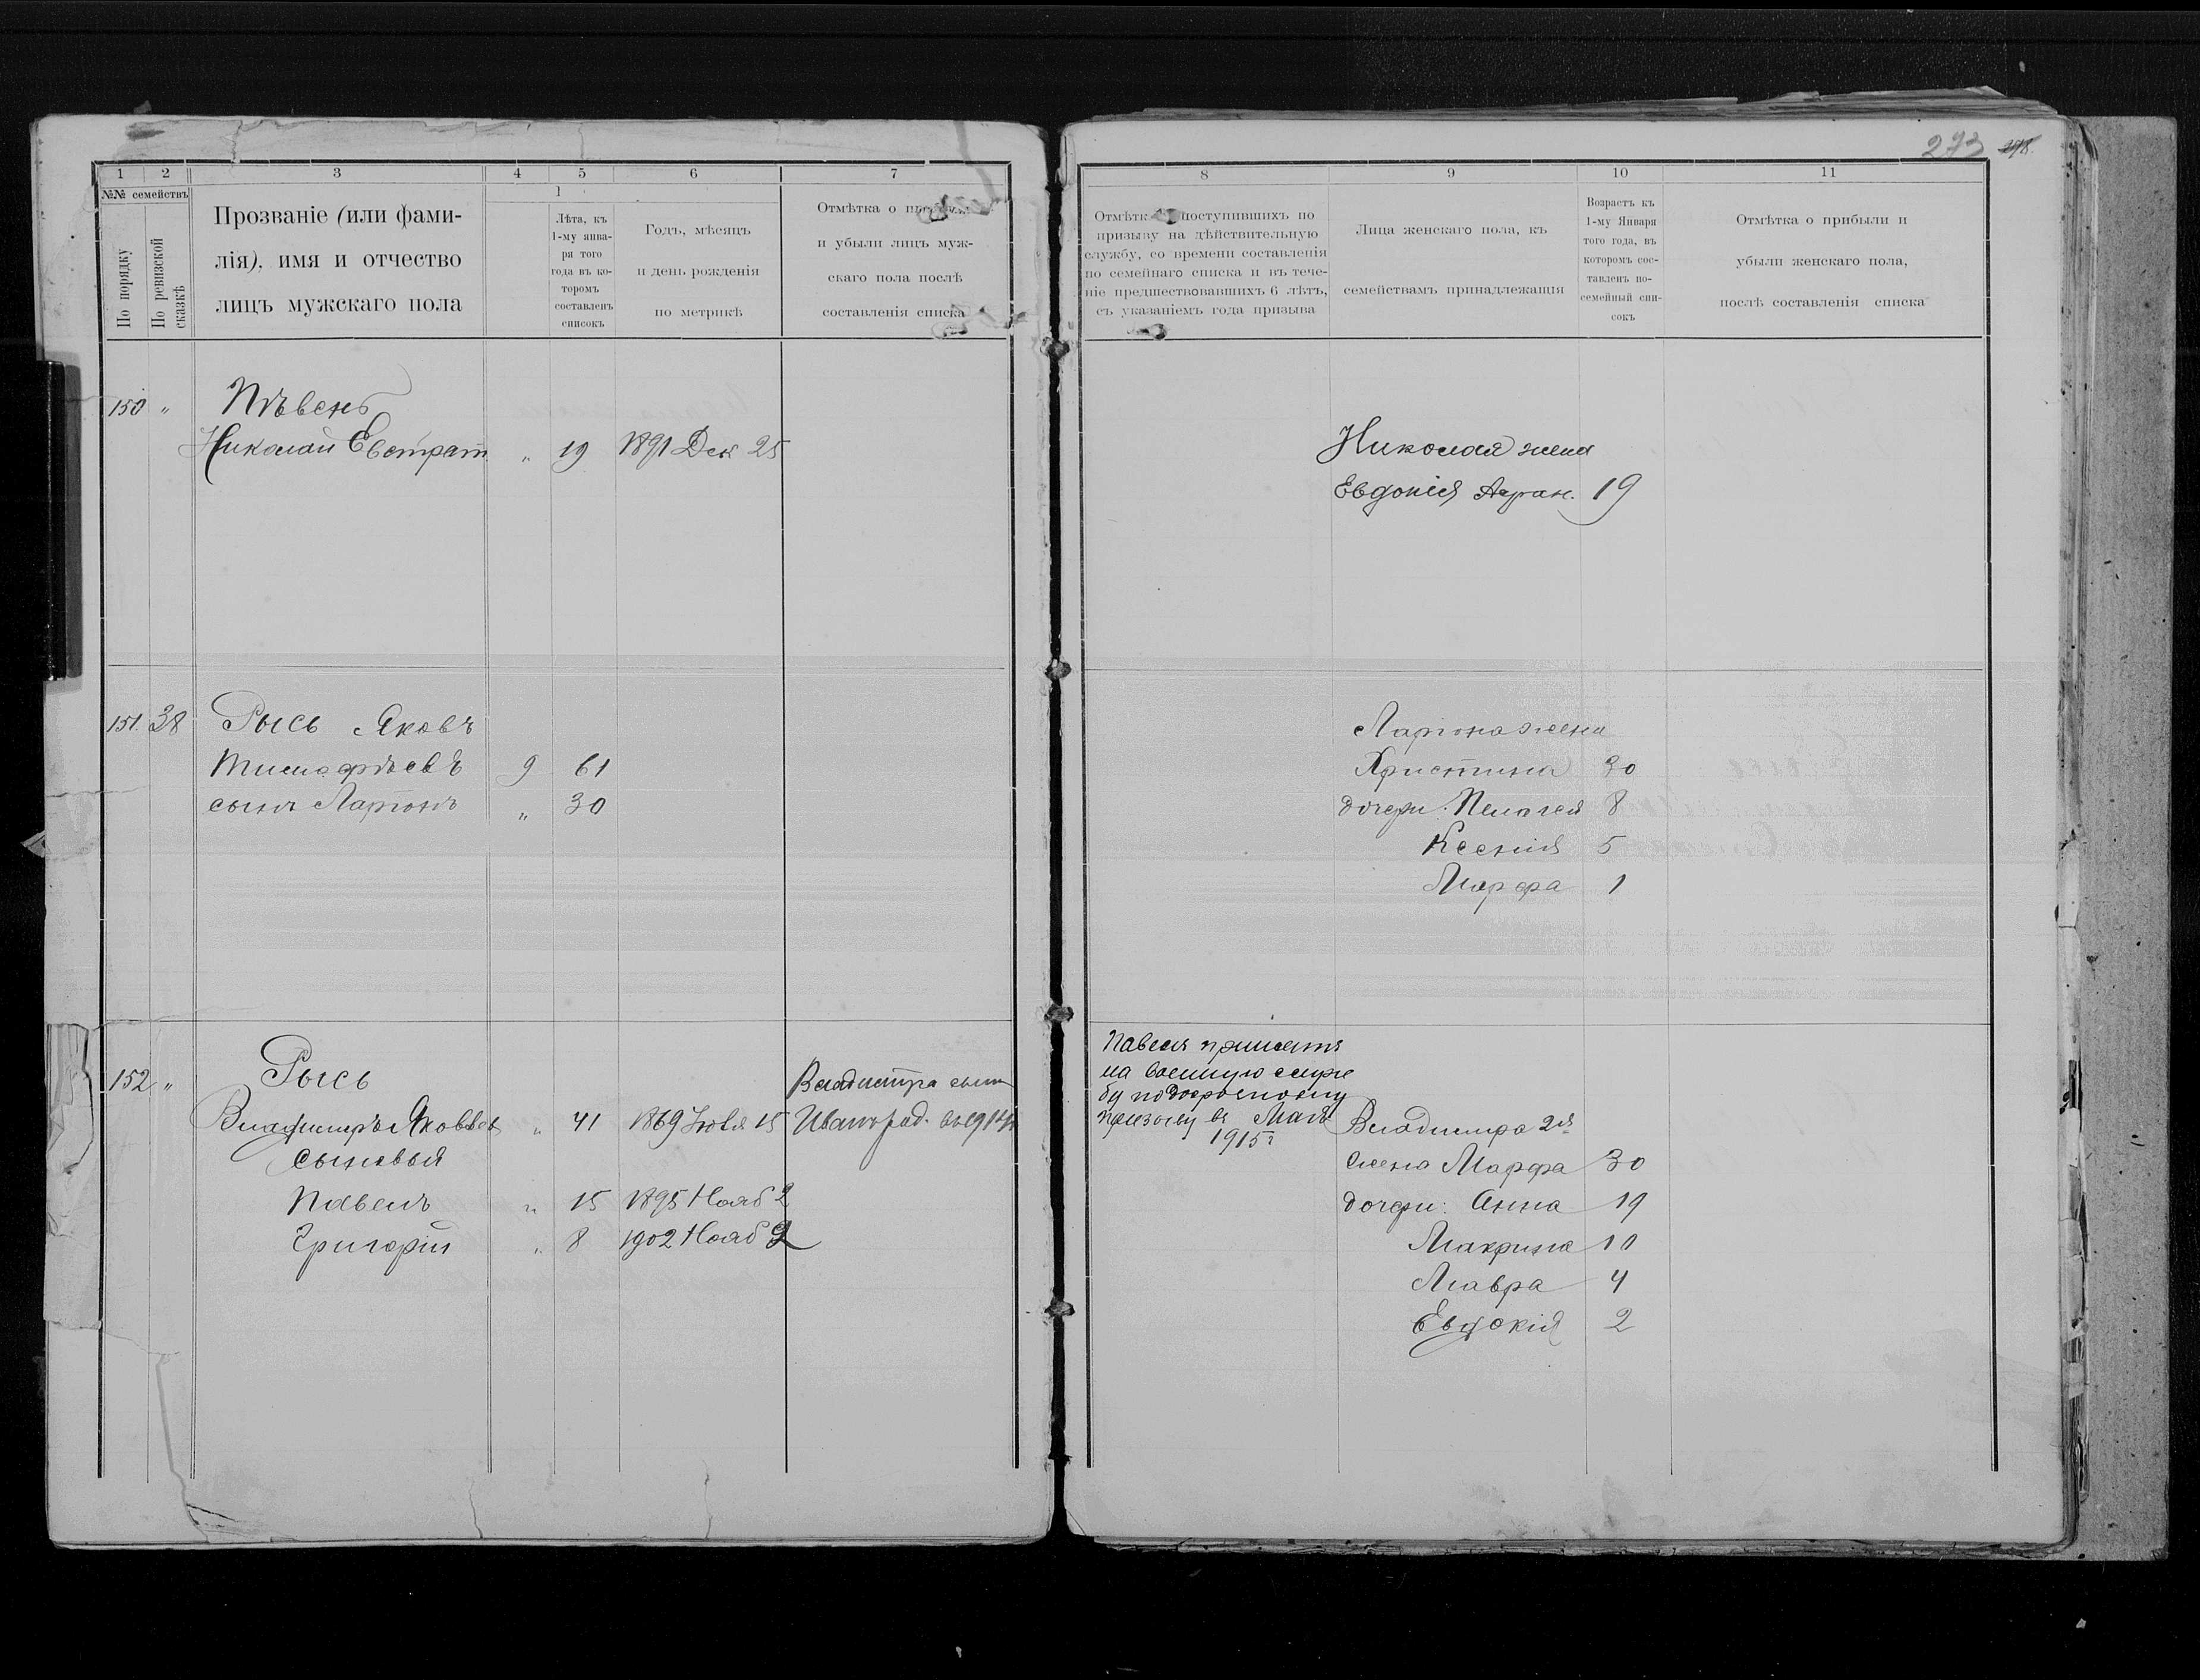 273 278.
1 2 3 4 5 6 7
№№ семействъ
По порядку
По ревизской сказкѣ
Прозваніе (или фами-
лія), имя и отчество
лицъ мужскаго пола
Лѣта, къ
1-му янва-
ря того
года въ ко-
торомъ
составленъ
списокъ
Годъ, мѣсяцъ
и день рожденія
по метрикѣ
Отмѣтка о
и убыли лицъ муж-
скаго пола послѣ
составленія списка
150 " Пѣвень
Николай Евстрат. " 19 1891 Дек 25
151. 38 Рысь Яковъ
Тимофѣевъ 9 61
сынъ Ларіонъ " 30
152 " Рысь
Владимиръ Яковлев " 41 1869 Іюля 15
Владимира сынъ
Иванъ род. въ 1914г
Сыновья
Павелъ " 15 1895 Нояб 2
Григорій " 8 1902 Нояб 2
8 9 10 11
поступившихъ по
призыву на дѣйствительную
службу, со времени составленія
по семейнаго списка и въ тече-
ніе предшествовавшихъ 6 лѣтъ,
съ указаніемъ года призыва
Лица женскаго пола, къ
семействамъ принадлежащія
Возрастъ къ
1-му Января
того года, въ
которомъ сос-
тавленъ по-
семейный спи-
сокъ
Отмѣтка о прибыли и
убыли женскаго пола,
послѣ составленія списка
Николая жена
Евдокія 19
Ларіона жена
Христина 30
дочери: Пелагея 8
Ксенія 5
Марфа 1
Павелъ принятъ
на военную служ
бу по досрочному
призыву въ Маѣ
1915г
Владимира 2я
жена Марфа 30
дочери: Анна 19
Макрина 10
Мавра 4
Евдокія 2